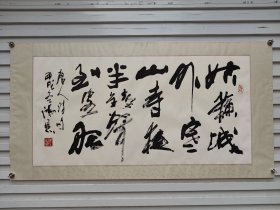 姑蘇城
外寒
山寺夜
半鐘聲
到客船
唐人詩句